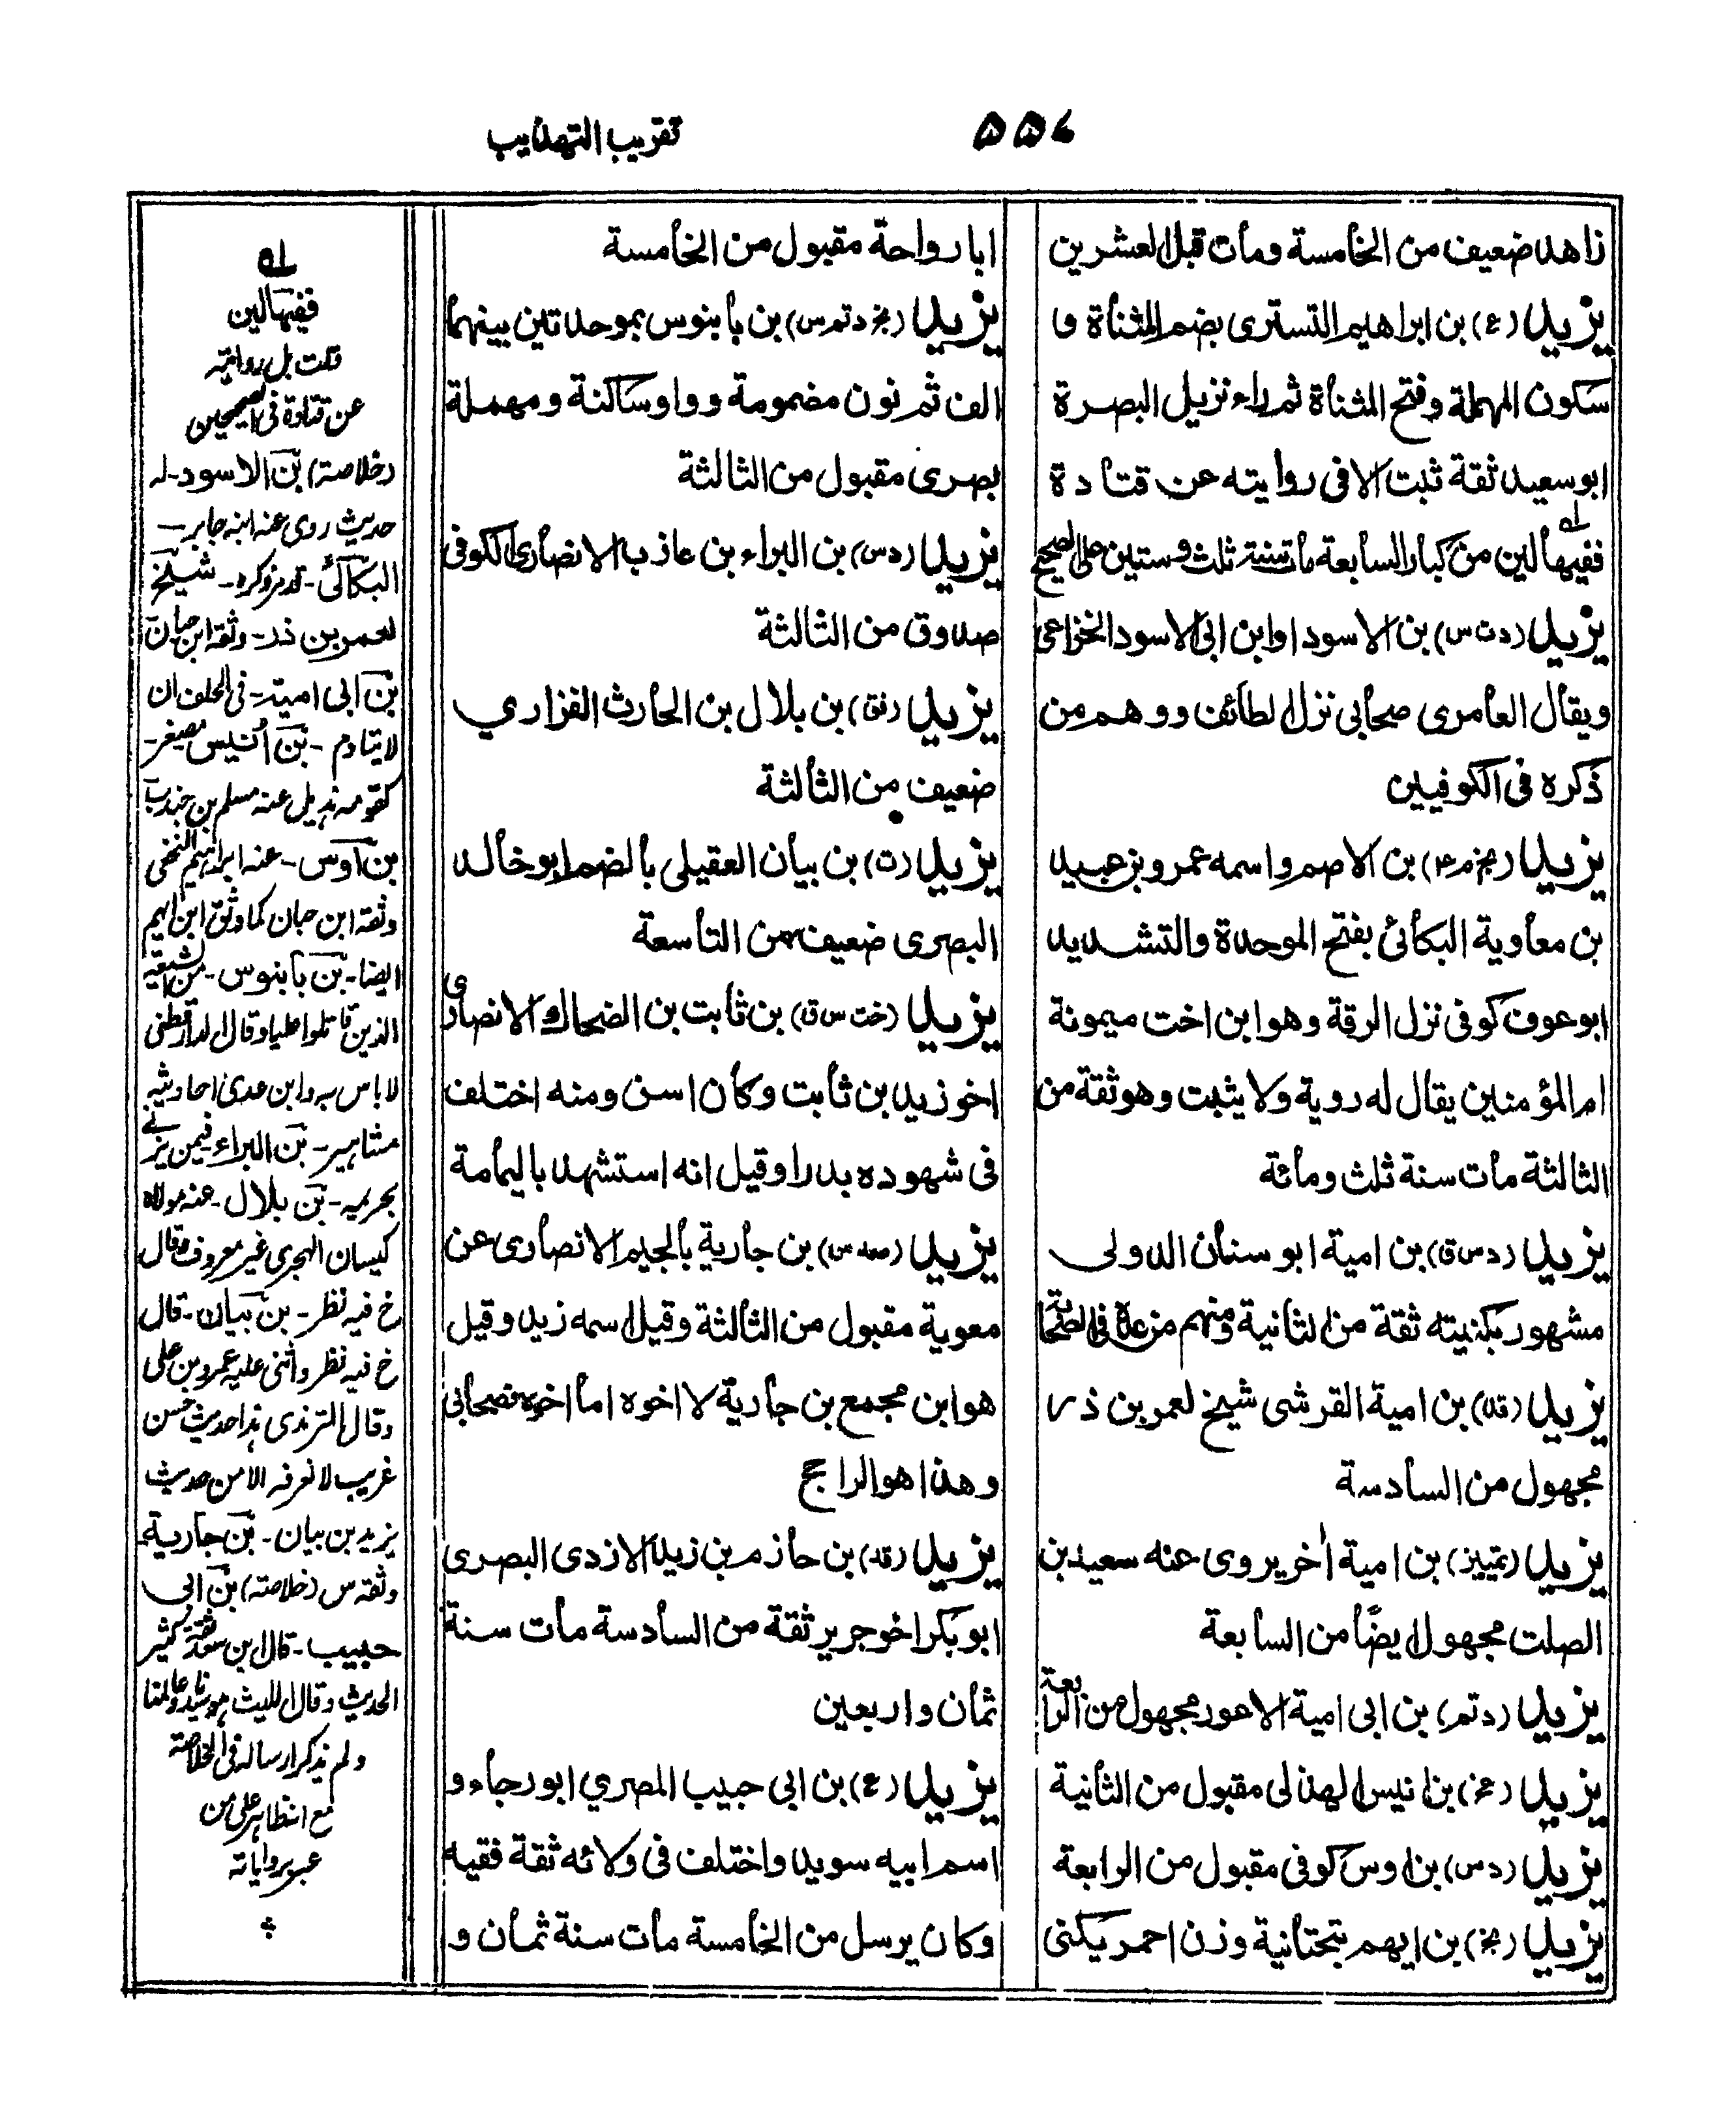 ۵۵۷
تقريب التهذيب
زاهد ضعيف من الخامسة ومات قبل العشرين
يزيد (ع) بن ابراهيم التسترى بضم المثناة و
سكون المهملة وفتح المثناة ثم راء نزيل البصرة
ابو سعيد ثقة ثبت الا فى روايته عن قتادة
ففيها لين من كبار السابعة مات سنة ثلث وستين على الصحيح
يزيد (دت س) بن الاسود اوابن ابى الاسود الخزاعى
ويقال العامرى صحابى نزل الطائف ووهم من
ذكره فى الكوفيين
يزيد (بخ م ع) بن الاصم واسمه عمرو بن عبيد
بن معاوية البكائى بفتح الموحدة والتشديد
ابو عوف كوفى نزل الرقة وهو ابن اخت ميمونة
ام المؤمنين يقال له روية ولا يثبت وهو ثقة من
الثالثة مات سنة ثلث ومائة
يزيد (دس ق) بن امية ابو سنان الدولى
مشهور بكنيته ثقة من الثانية ومنهم من عده فى الصحابة
يزيد (قد) بن امية القرشى شيخ لعمر بن ذر
مجهول من السادسة
يزيد (تمييز) بن امية اخر يروى عنه سعيد بن
الصلت مجهول ايضا من السابعة
يزيد (دتم) بن ابى امية الاعور مجهول من الرابعة
يزيد (عخ) بن انيس الهذلى مقبول من الثانية
يزيد (دس) بن اوس كوفى مقبول من الرابعة
يزيد (بخ) بن ايهم بتحتانية وزن احمر يكنى
ابا رواحة مقبول من الخامسة
يزيد (بخ دتم س) بن بابنوس بموحدتين بينهما
الف ثم نون مضمومة وواو ساكنة ومهملة
بصرى مقبول من الثالثة
يزيد (دس) بن البراء بن عازب الانصارى الكوفى
صدوق من الثالثة
يزيد (فق) بن بلال بن الحارث الفزاري
ضعيف من الثالثة
يزيد (ت) بن بيان العقيلى بالضم ابو خالد
البصرى ضعيف من التاسعة
يزيد (خت س ق) بن ثابت بن الضحاك الانصارى
اخو زيد بن ثابت وكان اسن ومنه اختلف
فى شهوده بدرا وقيل انه استشهد باليمامة
يزيد (صد س) بن جارية بالجيم الانصارى عن
معوية مقبول من الثالثة وقيل اسمه زيد وقيل
هو ابن مجمع بن جارية لا اخوه اما اخوه فصحابى
وهذا هو الراجح
يزيد (قد) بن حازم بن زيد الازدى البصرى
ابو بكر اخو جرير ثقة من السادسة مات سنة
ثمان واربعين
يزيد (ع) بن ابى حبيب المصري ابو رجاء و
اسم ابيه سويد واختلف فى ولائه ثقة فقيه
وكان يرسل من الخامسة مات سنة ثمان و
له
ففيها لين
قلت بل روايته
عن قتادة فى الصحيحين
(خلاصة) بن الاسود - له
حديث روى عنه ابنه جابر -
البكائى - قد مر ذكره - شيخ
لعمر بن ذر - وثقه ابن حبان
بن ابى امية - فى الحلف ان
لا يتادم - بن أنيس مصغر -
كقومه هذيل عنه مسلم بن جندب
بن اوس - عنه ابراهيم النخعى
وثقه ابن حبان كما وثق ابن ايهم
ايضا - بن بابنوس - من الشيعة
الذين قاتلوا عليا وقال الدارقطنى
لا باس به وابن عدى احاديثه
مشاهير - بن البراء - فيمن
بن بلال - عنه مولاه
كيسان الهجرى غير معروف وقال
خ فيه نظر - بن بيان - قال
خ فيه نظر واثنى عليه عمرو بن على
وقال الترمذى هذا حديث حسن
غريب لا نعرفه الا من حديث
يزيد بن بيان - بن جارية
وثقه س (خلاصته) بن ابى
حبيب - قال ابن سعد ثقة كثير
الحديث وقال الليث هو سيدنا وعالمنا
ولم يذكر ارساله فى الخلاصة